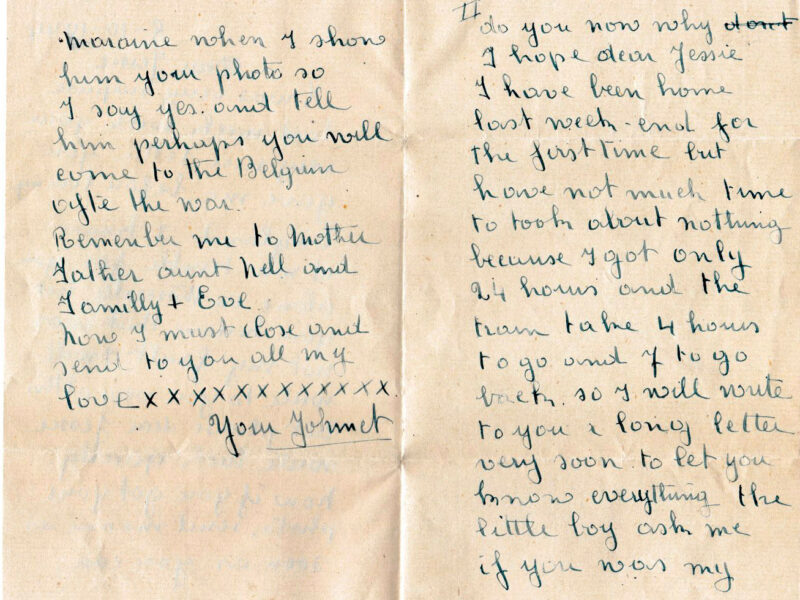 II
do you now why dont
I hope dear Jessie
I have been home
last week-end for
the first time but
have not much time
to took about nothing
because I got only
24 hours and the
train take 4 hours
to go and 7 to go
back. so I will write
to you a long letter
very soon to let you
know everything the
little boy ask me
if you was my
Maraine when I show
him your photo so
I say yes. and tell
him perhaps you will
come to the Belgium
afte the war.
Remember me to Mother
Father aunt Nell and
Familly + Eve
Now I must close and
send to you all my
love x x x x x x x x x x x x.
Your